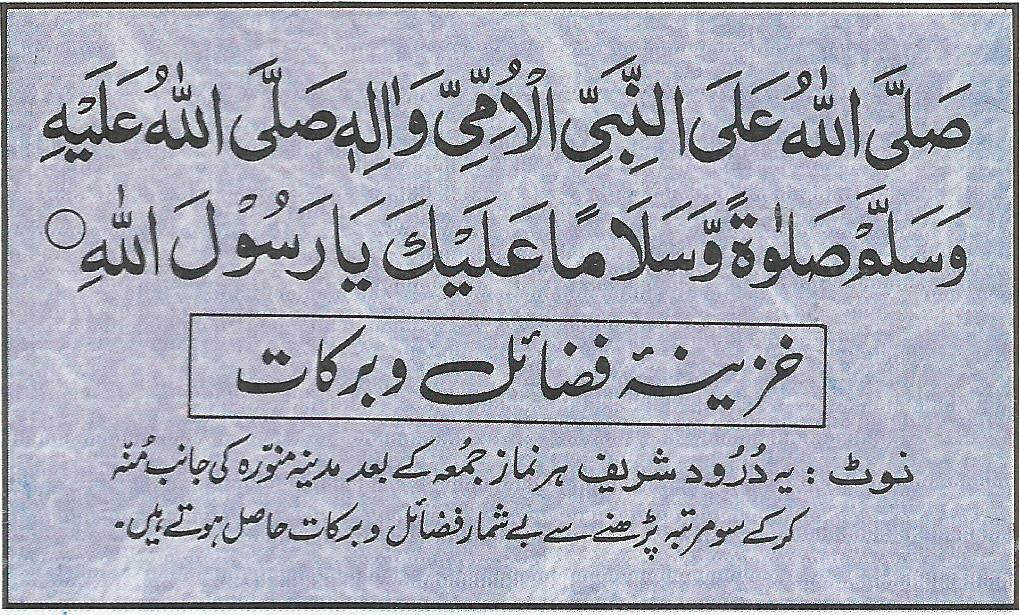 صَلَّى اللّٰهُ عَلَى النَّبِيِّ الْاُمِّيِّ وَاٰلِهٖ صَلَّى اللّٰهُ عَلَيْهِ
وَسَلَّمْ صَلٰوةً وَّسَلَامًا عَلَيْكَ يَا رَسُوْلَ اللّٰهِ
خزینۂ فضائل و برکات
نوٹ : یہ دُرُود شریف ہر نماز جمُعہ کے بعد مدینہ منوّرہ کی جانب مُنہ
کر کے سو مرتبہ پڑھنے سے بے شمار فضائل و برکات حاصل ہوتے ہیں۔